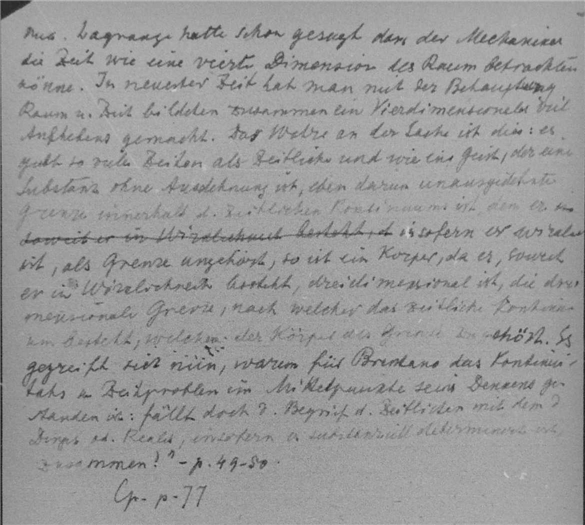 mus. Lagrange hatte schon gesagt dass der Mechaniker
die Zeit wie eine vierte Dimension des Raum betrachten
könne. In neuester Zeit hat man mit der Behauptung
Raum u. Zeit bildeten zusammen ein Vierdimensionales viel
Aufhebens gemacht. Das Wahre an der Sache ist dies: es
gibt so viele Zeiten als Zeitliche und wie ein Geist, der eine
Substanz ohne Ausdehnung ist, eben darum unausgedehnte
Grenze innerhalb d. Zeitlichen Kontinuums ist, dem er
soweit er in Wirklichkeit besteht, insofern er wirklich
ist, als Grenze angehört, so ist ein Körper, da er, soweit
er in Wirklichkeit besteht, dreidimensional ist, die drei
mensionale Grenze, nach welcher das zeitliche Kontinu
um besteht, welchem der Körper als Grenze zugehört. Es
begreift sich nun, warum für Brentano das Kontinui-
täts u Zeitproblem im Mittelpunkte seines Denkens ge-
standen ist: fällt doch d. Begriff d. Zeitlichen mit dem d
Dinges od. Realen, insofern es substanziell determiniert ist,
zusammen!" - p. 49-50.
Cp. p. 77